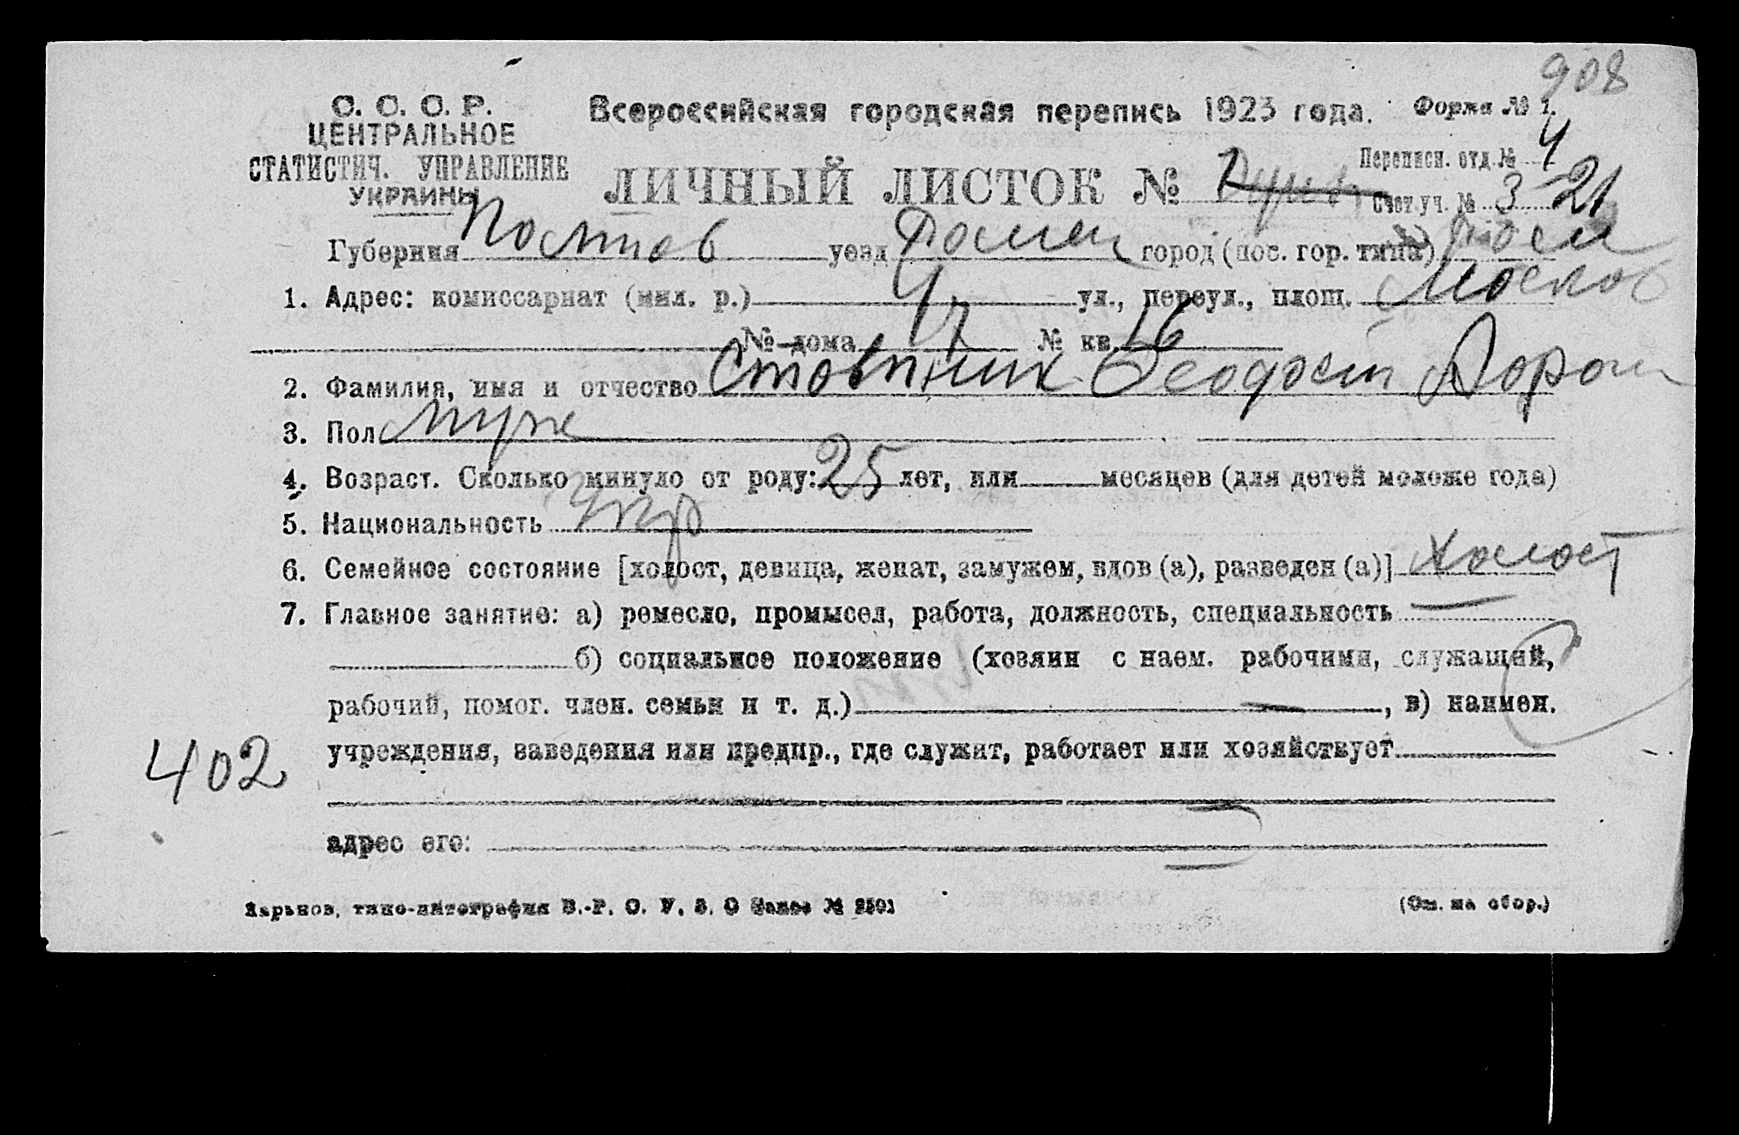 908
С. С. С. Р.
ЦЕНТРАЛЬНОЕ
СТАТИСТИЧ. УПРАВЛЕНИЕ
УКРАИНЫ
Всероссийская городская перепись 1923 года. Форма № 1.
Переписн. отд. № 4
ЛИЧНЫЙ ЛИСТОК №
Счет уч. № 3 21
Губерния уезд город (пос. гор. типа)
1. Адрес: комиссариат (мил. р.) 4 ул., переул., площ. Москов
№ дома 17 № кв. 16
2. Фамилия, имя и отчество Стовпник Феодосий
3. Пол муж
4. Возраст. Сколько минуло от роду: 25 лет, или месяцев (для детей моложе года)
5. Национальность Укр
6. Семейное состояние [холост, девица, женат, замужем, вдов (а), разведен (а)] Холост
7. Главное занятие: а) ремесло, промысел, работа, должность, специальность —
б) социальное положение (хозяин с наем. рабочими, служащий,
рабочий, помог. член. семьи и т. д.) —, в) наимен.
учреждения, заведения или предпр., где служит, работает или хозяйствует
402
адрес его:
Харьков, типо-литография В.-Р. О. У. З. О Заказ № 2501
(См. на обор.)